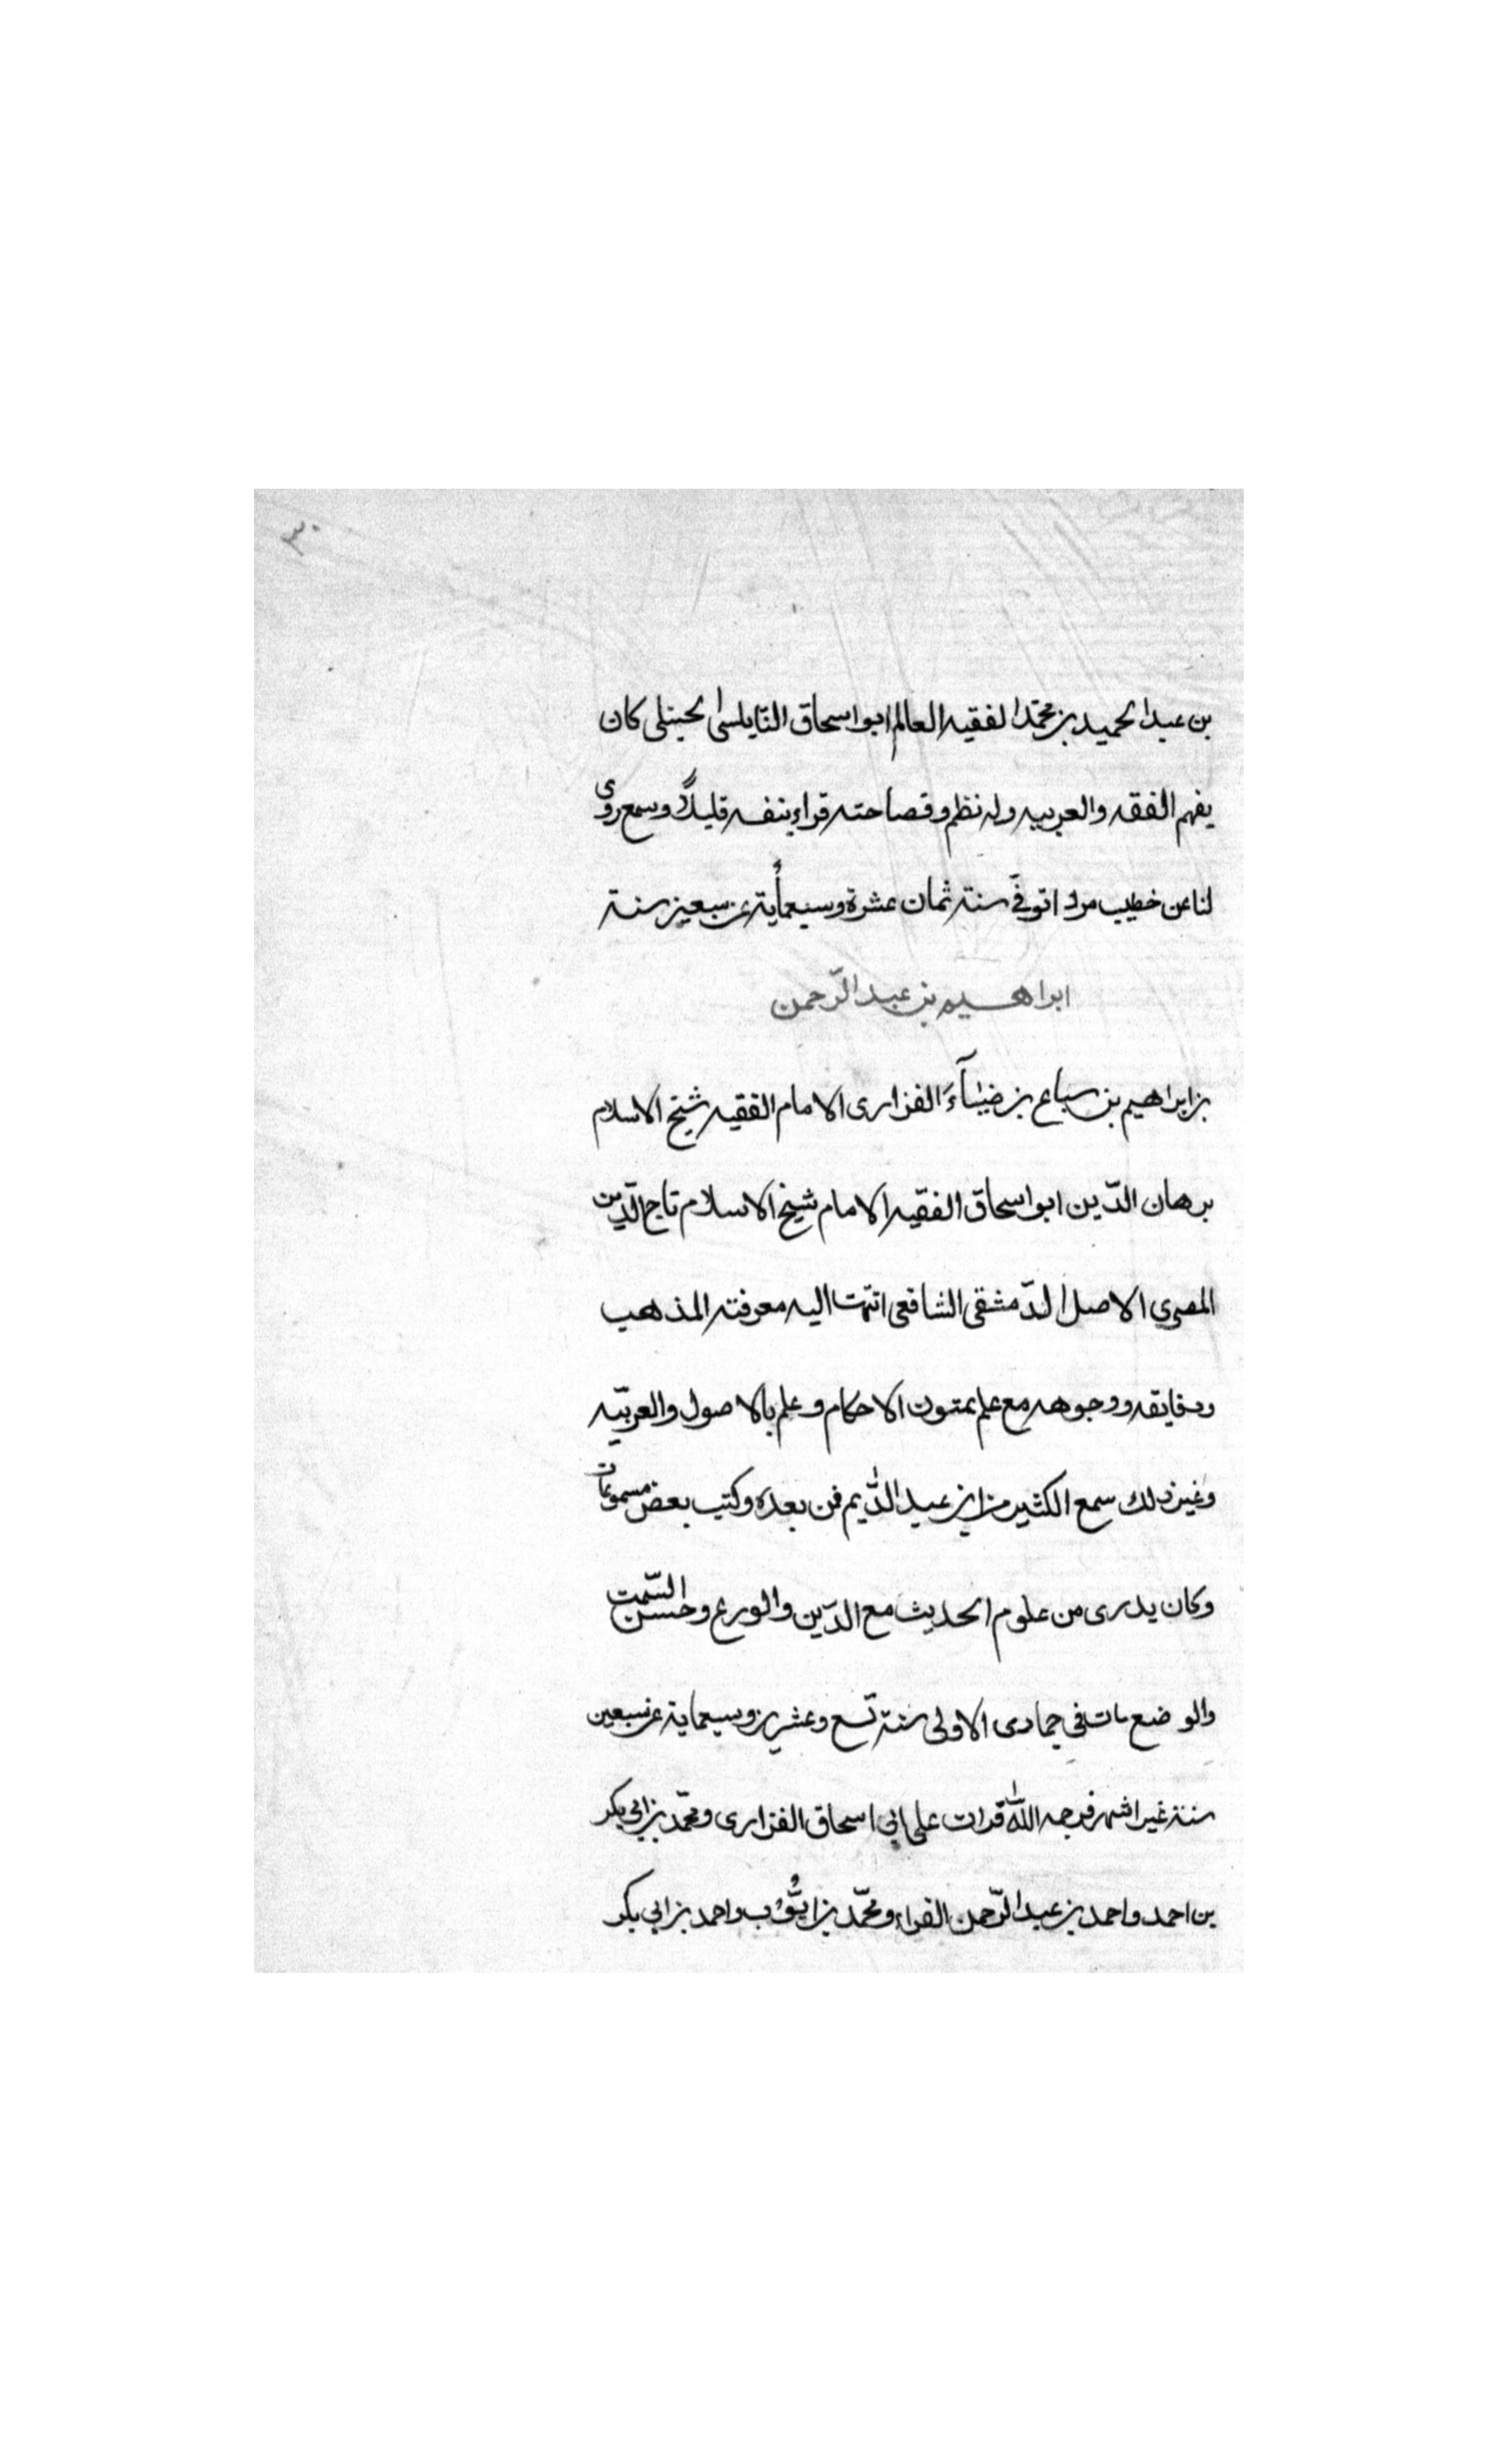 ٣٠
بن عبد الحميد بن محمّد الفقيه العالم ابو اسحاق النّابلسى الحنبلى كان
يفهم الفقه والعربيه وله نظم وفصاحته قراء بنفسه قليلاً وسمع روى
لنا عن خطيب مردا توفّى سنة ثمان عشرة وسبعمأية عن سبعين سنة
ابراهيم بن عبد الرّحمن
بن ابراهيم بن سباع بن ضيآء الفزارى الامام الفقيه شيخ الاسلام
برهان الدّين ابو اسحاق الفقيه الامام شيخ الاسلام تاج الدّين
المصرى الاصل الدّمشقى الشافعى انتهت اليه معرفته المذهب
ودقايقه ووجوهه مع علم بمتون الاحكام وعلم بالاصول والعربيّه
وغير ذلك سمع الكثير من ابن عبد الدّايم فمن بعده وكتب بعض مسموعات
وكان يدرى من علوم الحديث مع الدّين والورع وحسن السّمت
والوضع مات فى جمادى الاولى سنة تسع وعشرين وسبعماية عن سبعين
سنة غير اشهر فرحمه اللّه قرات على ابى اسحاق الفزارى ومحمّد بن ابى بكر
بن احمد واحمد بن عبد الرّحمن الفراء ومحمّد بن ايّوب واحمد بن ابى بكر